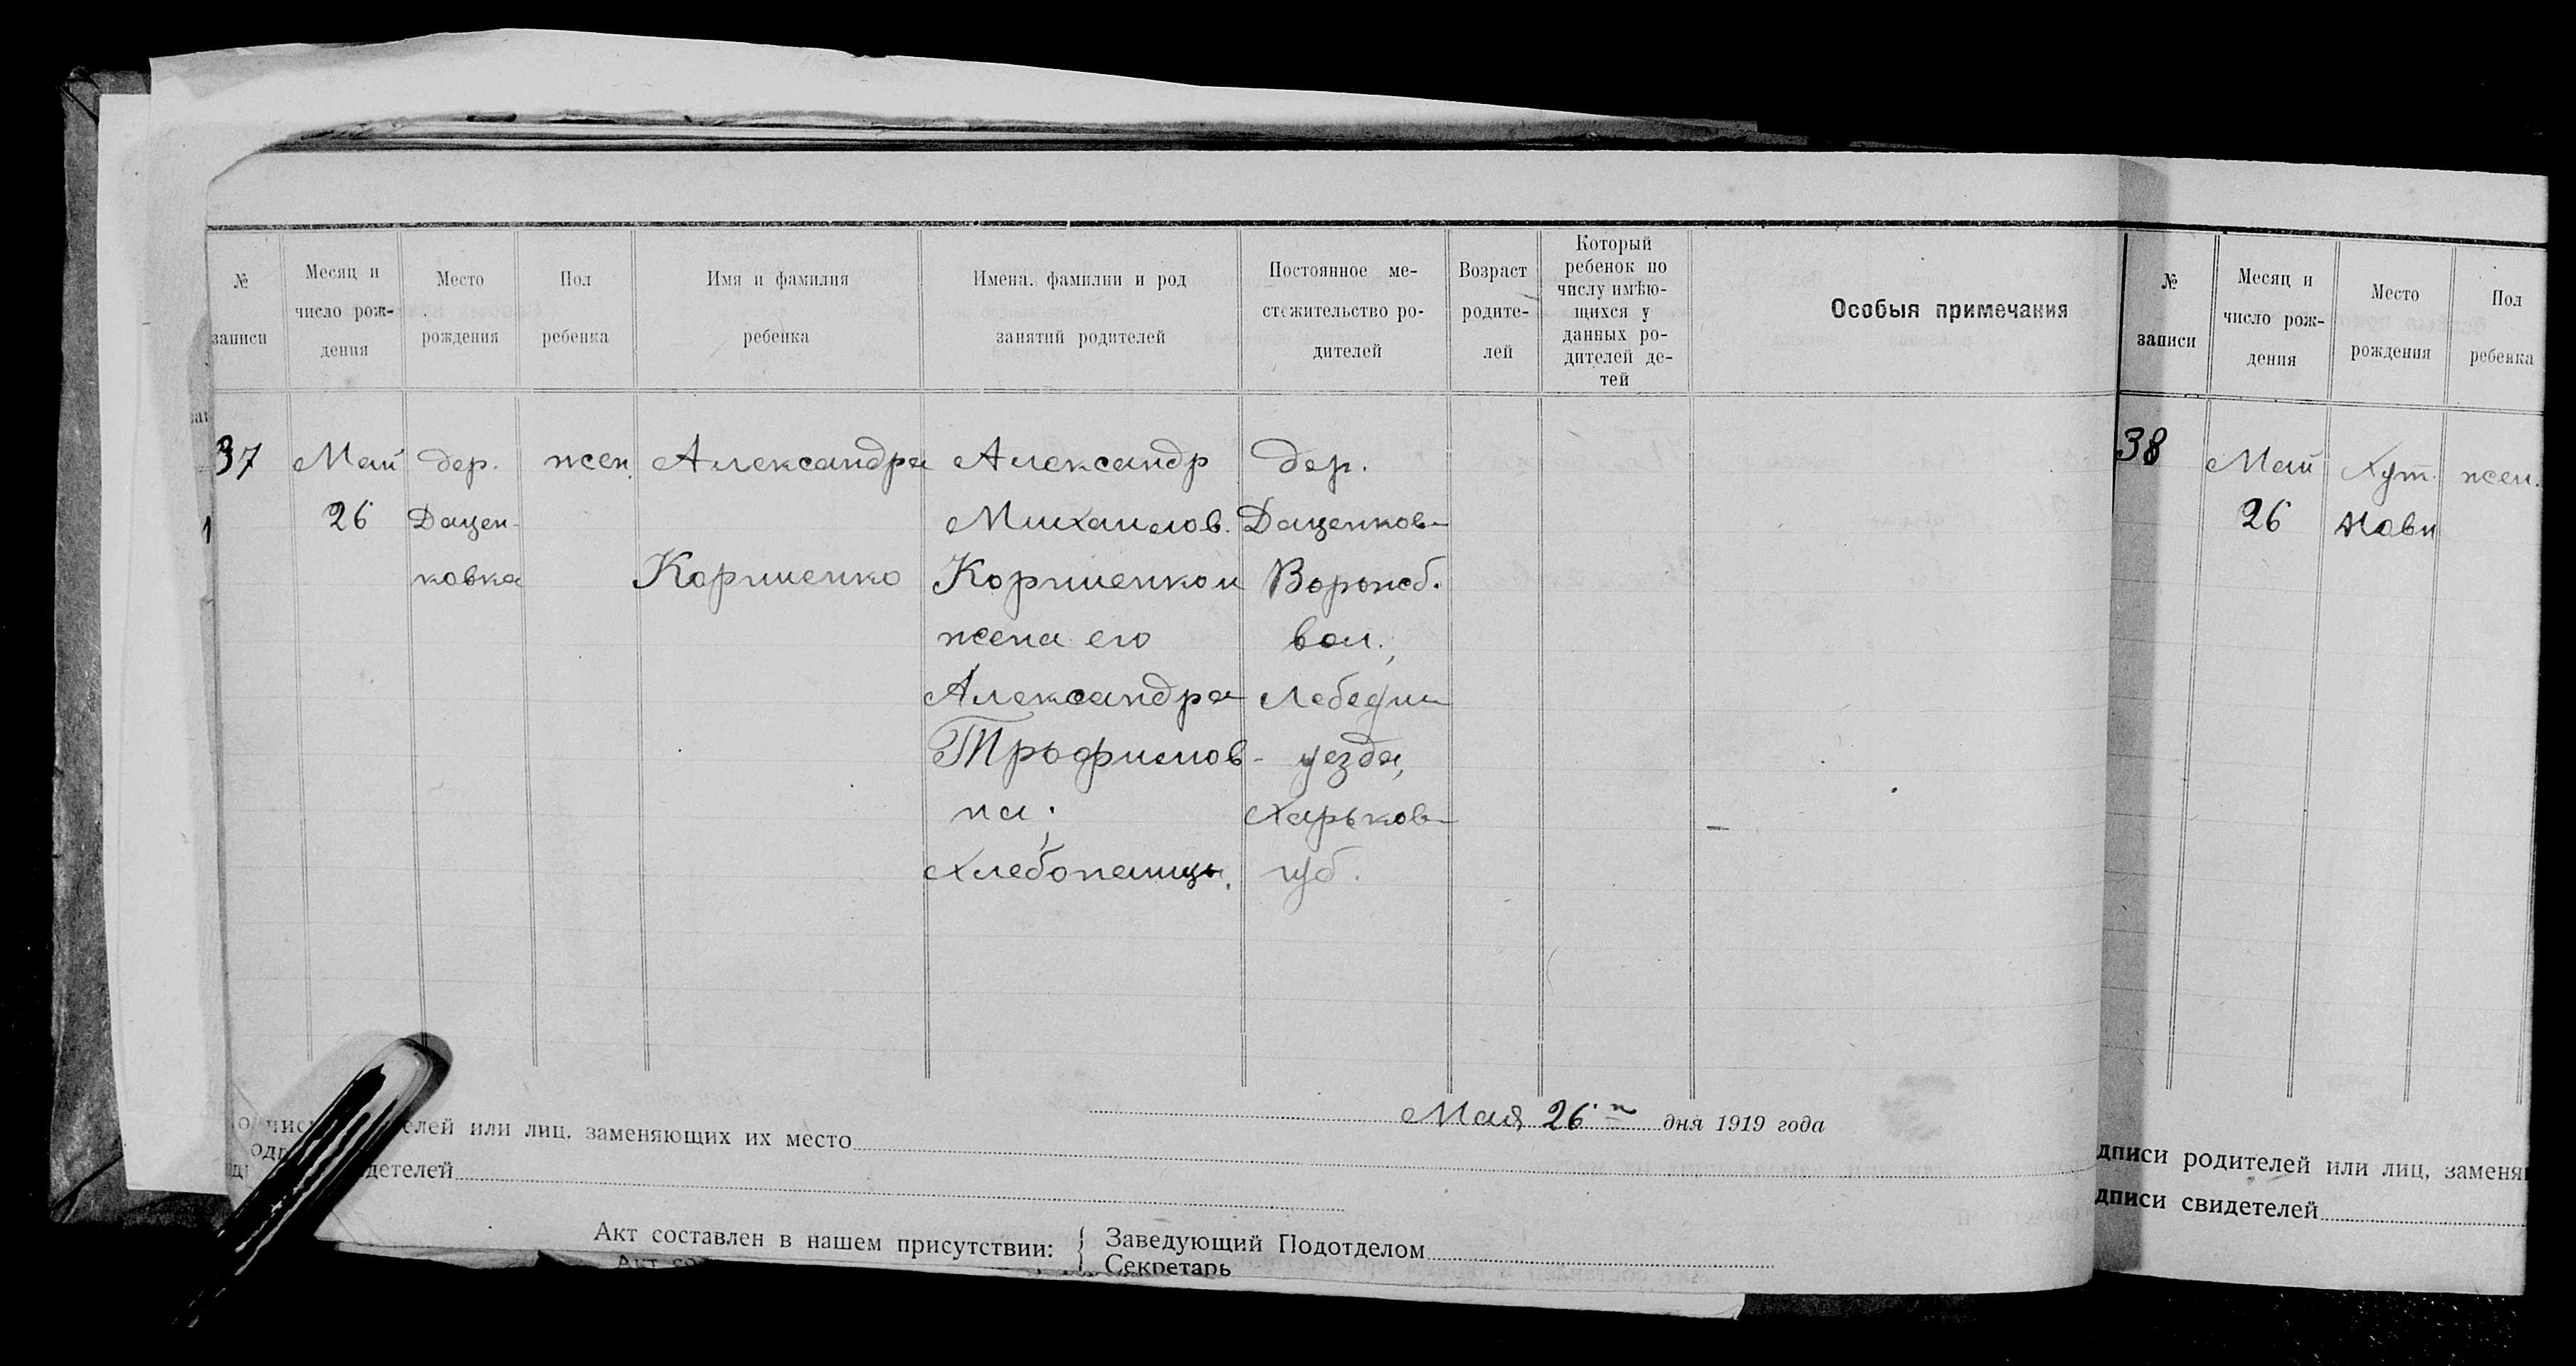 № записи
Месяц и число рождения
Место рождения
Пол ребенка
Имя и фамилия ребенка
Имена, фамилии и род занятий родителей
Постоянное местожительство родителей
Возраст родителей
Который ребенок по числу имѣющихся у данных родителей детей
Особыя примечания
37
Май
26
дер.
Дацен-
ковка
жен.
Александра
Коршенко
Александр
Михаилов.
Коршенко и
жена его
Александра
Трофимов-
на;
хлебопашцы.
дер.
Даценков-
Ворожб.
вол.,
Лебедин
уезда,
Харьков-
губ.
Мая 26 дня 1919 года
елей или лиц, заменяющих их место
детелей
Акт составлен в нашем присутствии:
Заведующий Подотделом
Секретарь
№ записи
Месяц и число рождения
Место рождения
Пол ребенка
38
Май
26
Хут.
жен.
дписи родителей или лиц, заменя
дписи свидетелей